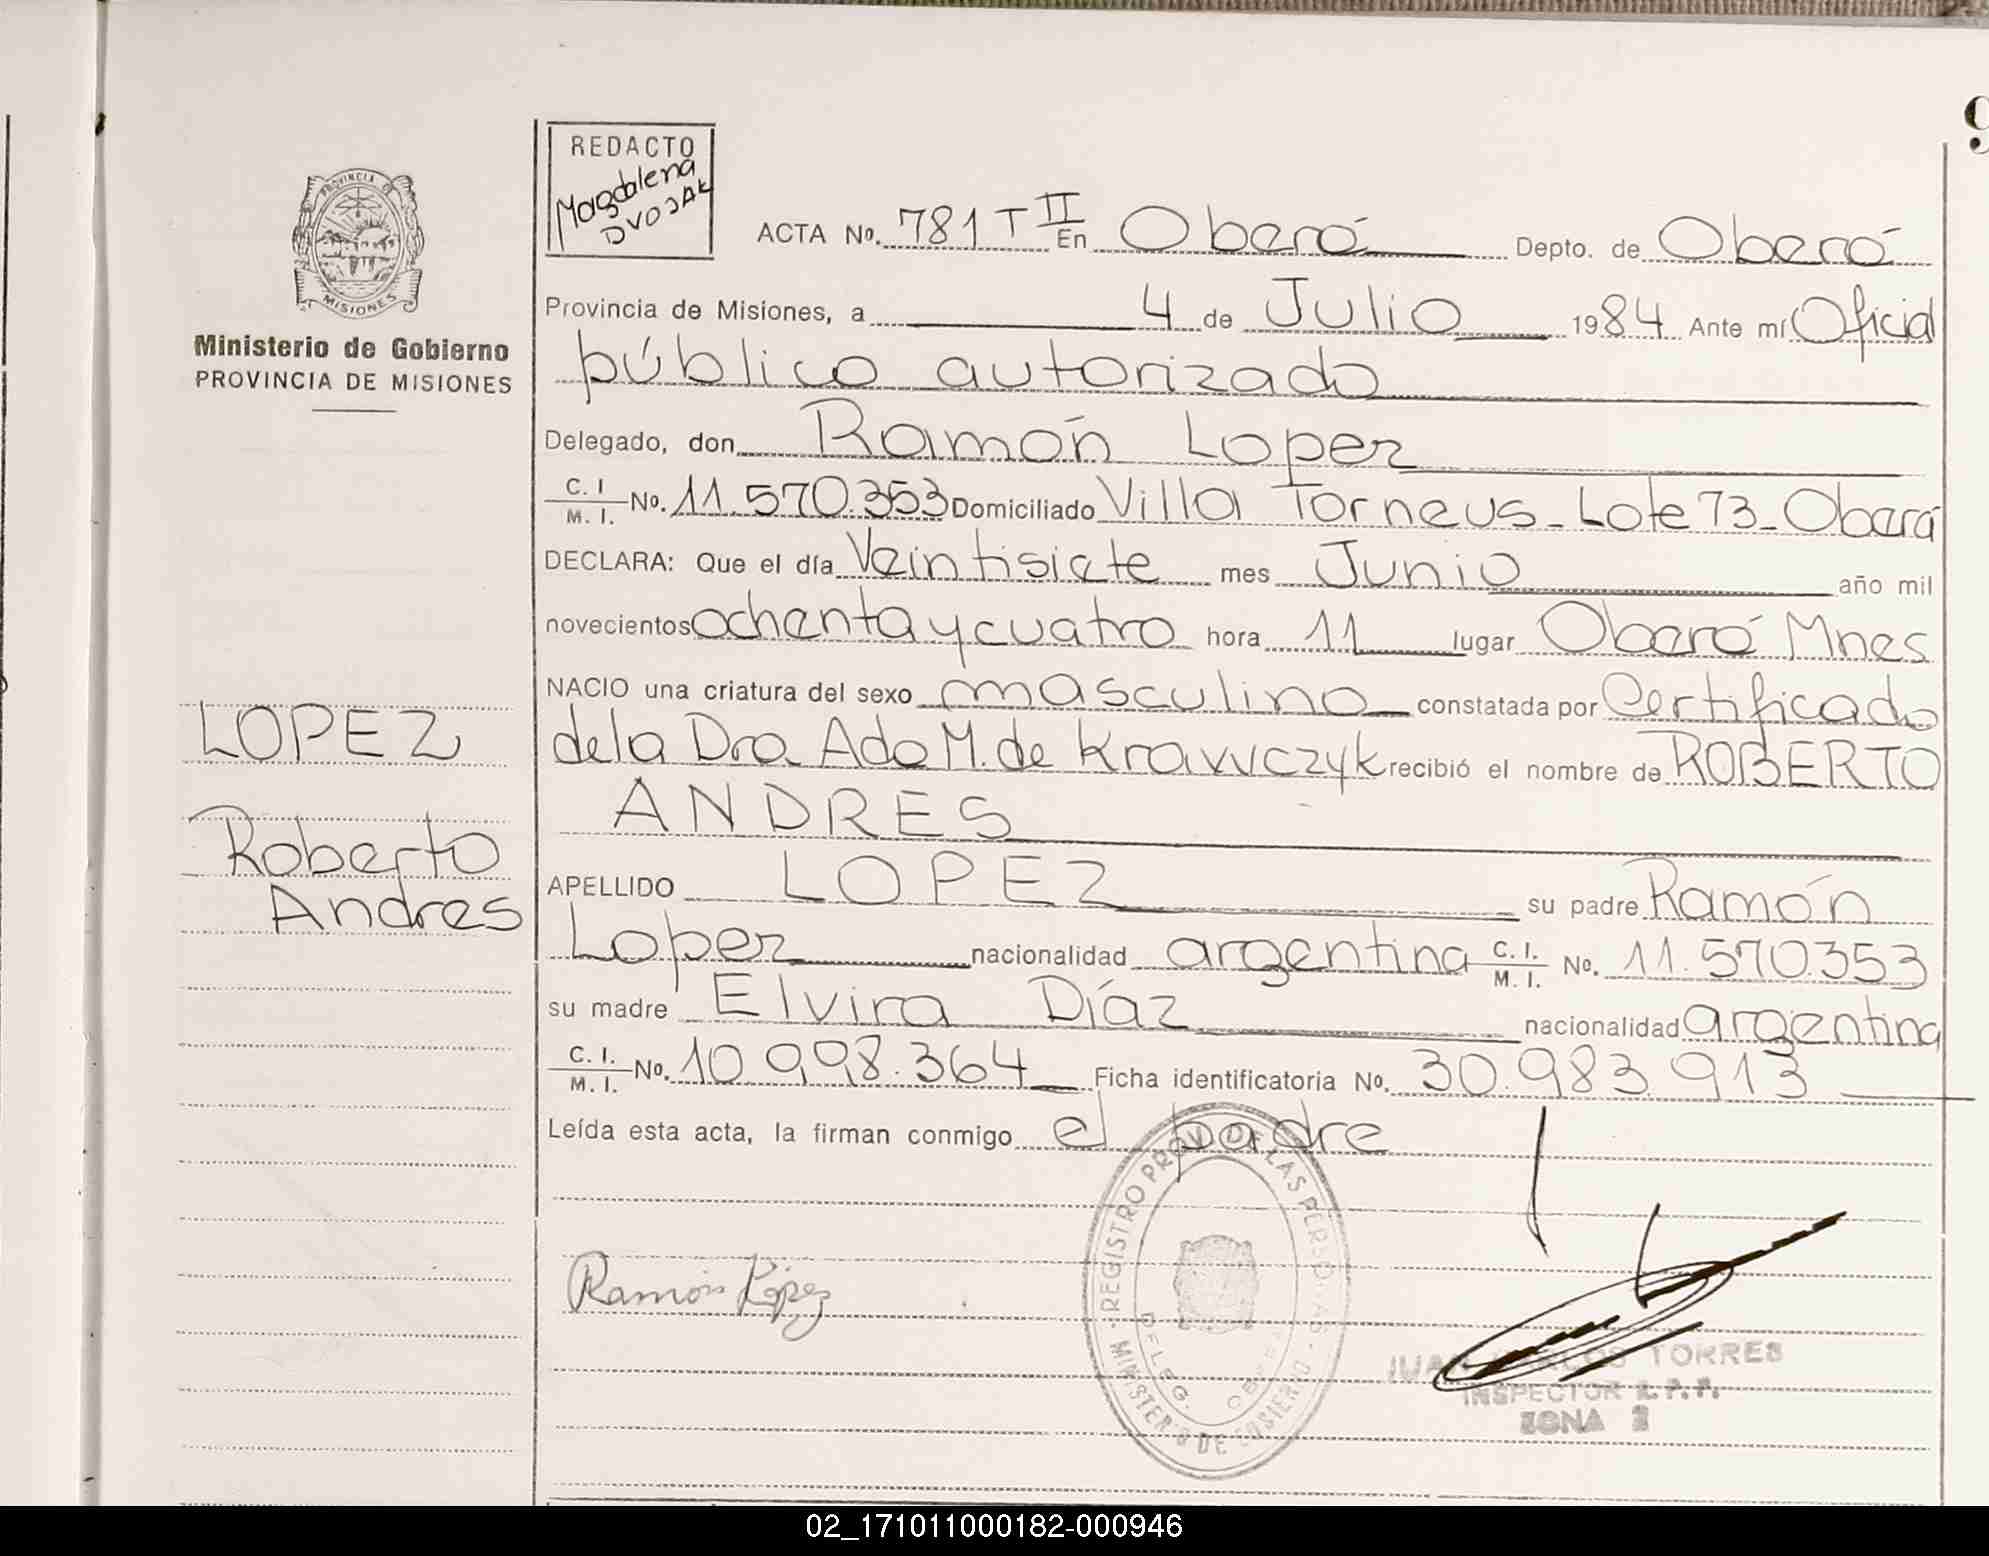 REDACTO
Magdalena
DVOJAK
PROVINCIA DE
MISIONES
Ministerio de Gobierno
PROVINCIA DE MISIONES
ACTA No. 781 T II En Oberá Depto. de Oberá
Provincia de Misiones, a 4 de Julio 1984 Ante mí Oficial
público autorizado
Delegado, don Ramón Lopez
C. I. / M. I. No. 11.570.353 Domiciliado Villa Torneus - Lote 73 - Oberá
DECLARA: Que el día Veintisiete mes Junio año mil
novecientos ochenta y cuatro hora 11 lugar Oberá Mnes
NACIO una criatura del sexo masculino constatada por Certificado
de la Dra. Ada M. de Krawczyk recibió el nombre de ROBERTO
ANDRES
APELLIDO LOPEZ su padre Ramón
Lopez nacionalidad argentina C. I. / M. I. No. 11.570.353
su madre Elvira Díaz nacionalidad argentina
C. I. / M. I. No. 10.998.364 Ficha identificatoria No. 30.983.913
Leída esta acta, la firman conmigo el padre
LOPEZ
Roberto
Andres
Ramón López
REGISTRO PROV. DE LAS PERSONAS
MINISTERIO DE GOBIERNO
DELEG. OBERA
JUAN CARLOS TORRES
INSPECTOR R.P.P.
ZONA 2
9
02_171011000182-000946